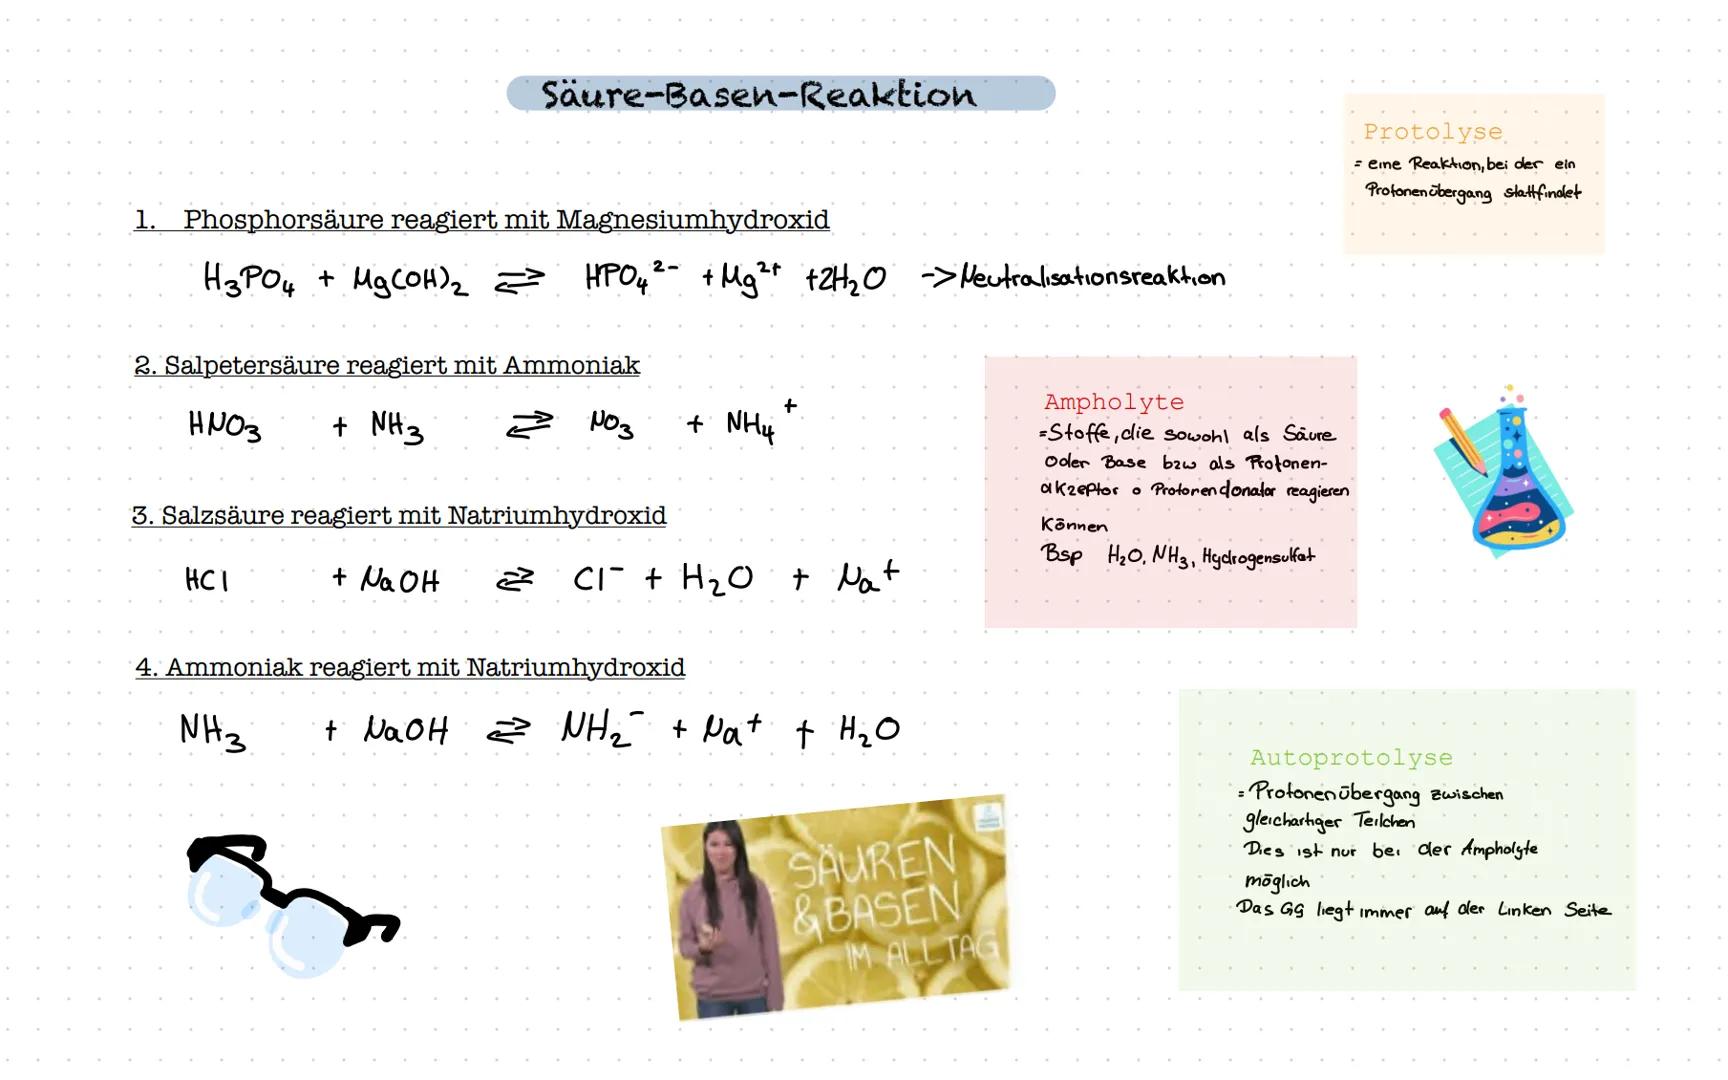 Säure-Basen-Reaktion
Protolyse
= eine Reaktion, bei der ein
Protonenübergang stattfindet
1. Phosphorsäure reagiert mit Magnesiumhydroxid
H₃PO₄ + Mg(OH)₂ ⇌ HPO₄²⁻ + Mg²⁺ + 2H₂O -> Neutralisationsreaktion
2. Salpetersäure reagiert mit Ammoniak
HNO₃ + NH₃ ⇌ NO₃ + NH₄⁺
Ampholyte
= Stoffe, die sowohl als Säure
oder Base bzw als Protonen-
akzeptor o Protonendonator reagieren
können
Bsp H₂O, NH₃, Hydrogensulfat
3. Salzsäure reagiert mit Natriumhydroxid
HCl + NaOH ⇌ Cl⁻ + H₂O + Na⁺
4. Ammoniak reagiert mit Natriumhydroxid
NH₃ + NaOH ⇌ NH₂⁻ + Na⁺ + H₂O
Autoprotolyse
= Protonenübergang zwischen
gleichartiger Teilchen
Dies ist nur bei der Ampholyte
möglich
Das GG liegt immer auf der Linken Seite
SÄUREN
& BASEN
IM ALLTAG